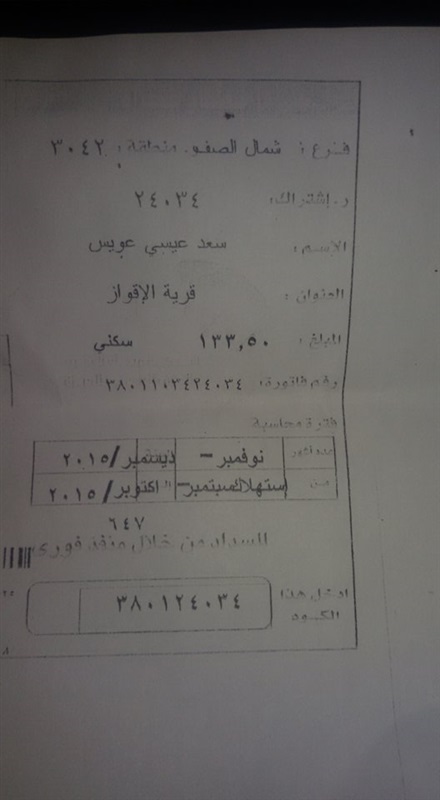 فرع : شمال الصف منطقة : ٣٠٤٢
ر.إشتراك: ٢٤٠٣٤
الإسم: سعد عيسي عويس
العنوان : قرية الإقواز
المبلغ : ١٣٣,٥٠ سكني
رقم فاتورة: ٣٨٠١١٠٢٤٢٤٠٣٤
فترة محاسبة
عدد أشهر نوفمبر - ديسمبر/٢٠١٥
عن إستهلاك سبتمبر - اكتوبر/٢٠١٥
٦٤٧
السداد من خلال منفذ فوري
ادخل هذا الكود ٣٨٠١٢٤٠٣٤